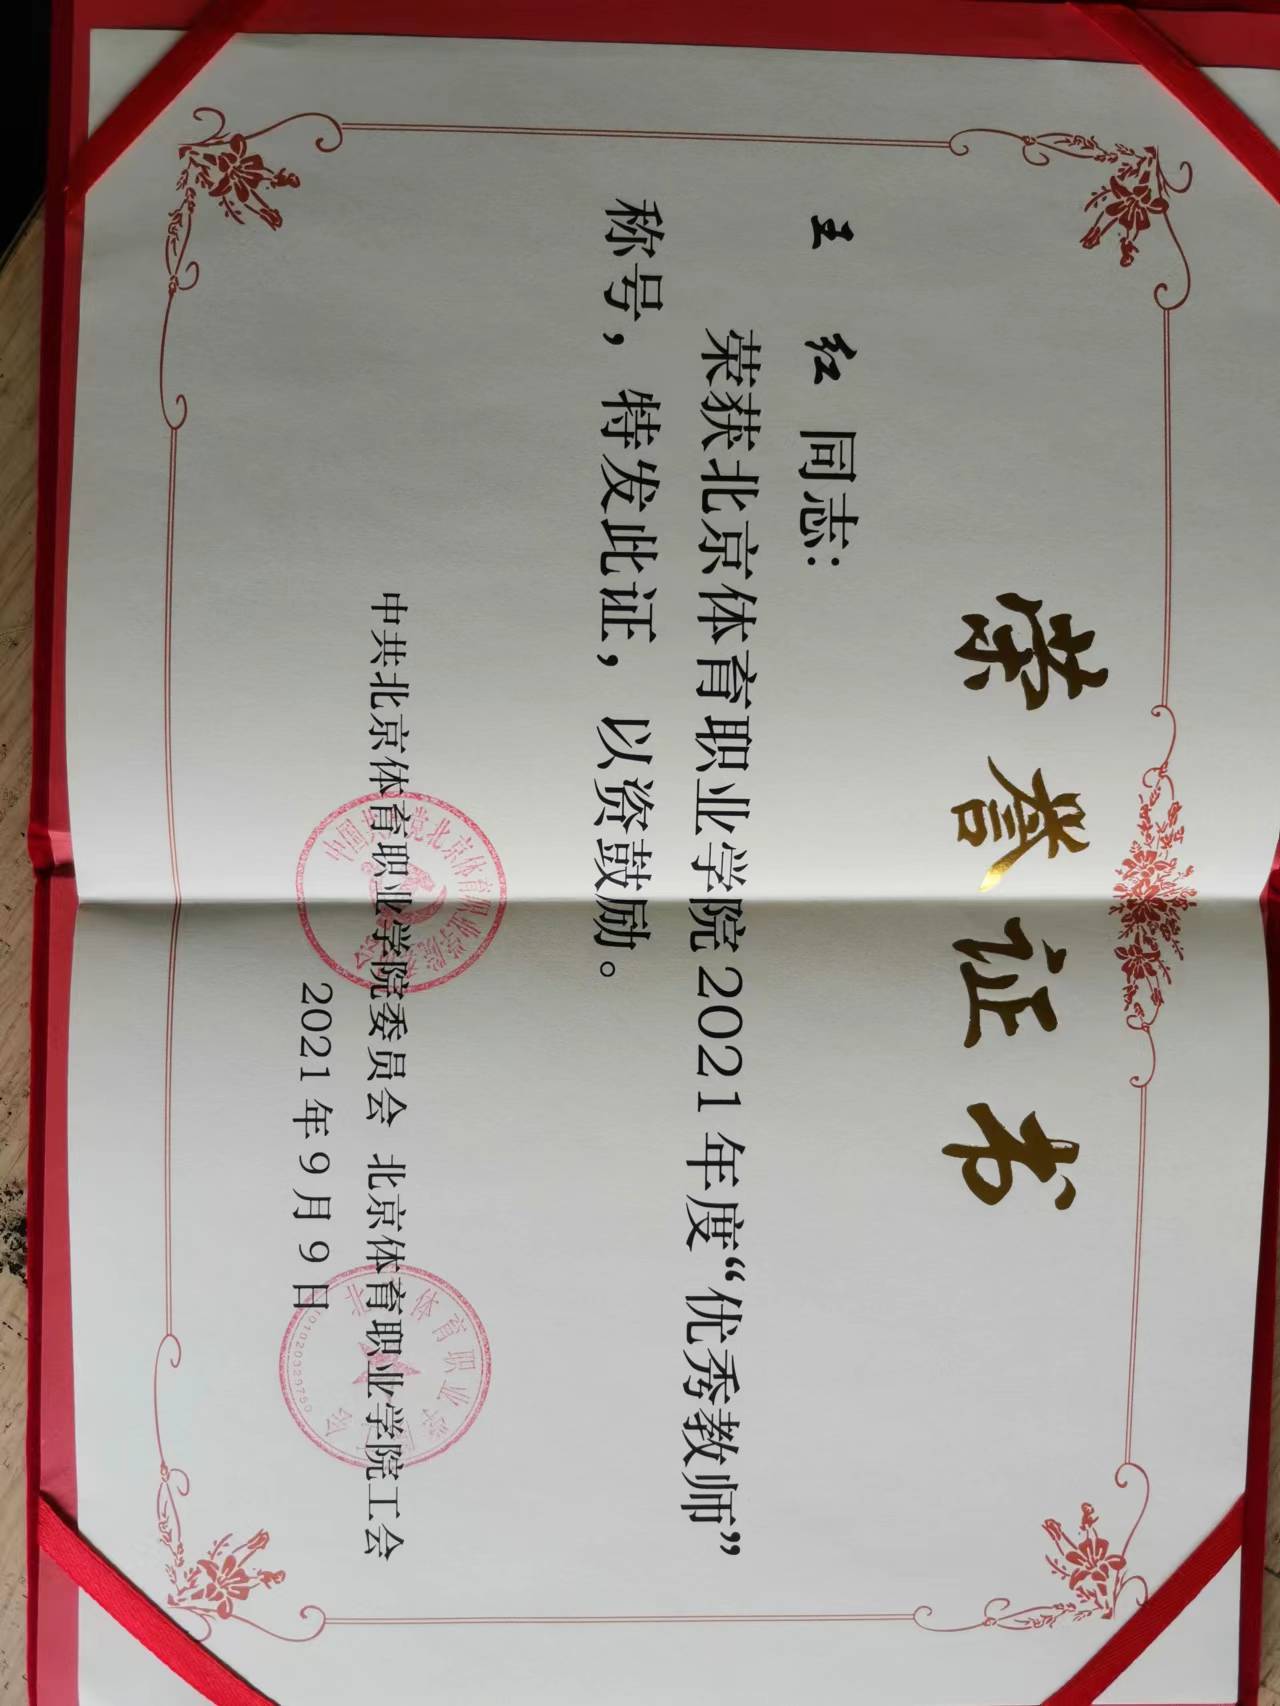 荣誉证书
王 红 同志:
荣获北京体育职业学院2021年度“优秀教师”
称号，特发此证，以资鼓励。
中共北京体育职业学院委员会 北京体育职业学院工会
2021年9月9日